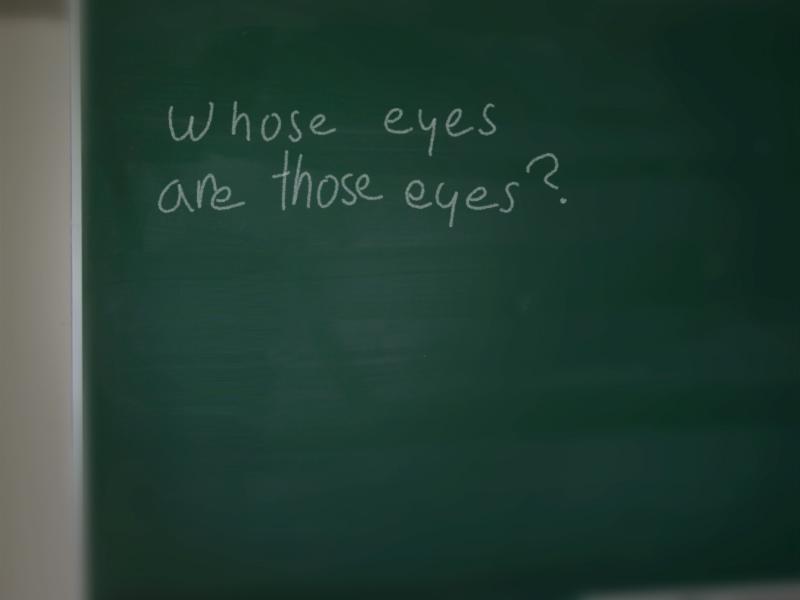 Whose eyes
are those eyes?